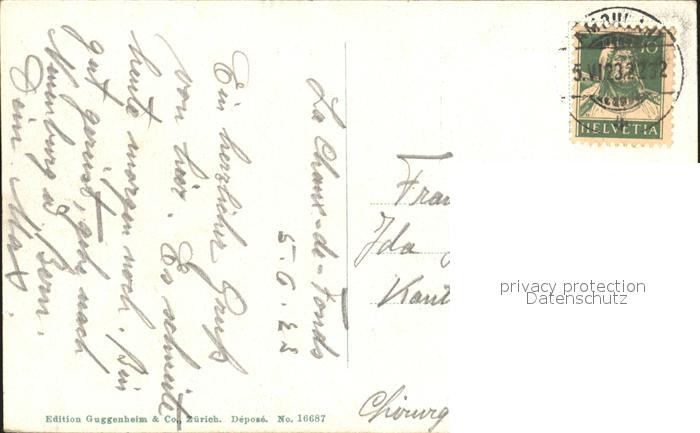 La Chaux-de-Fonds
5.6.23
Ein herzlicher Gruß
von hier. Es schneite
heute morgen noch. Bin
gut gereist, gehe nach
Neuenburg & Bern.
Dein Max.
Frau
Ida
Kant
Chirurg
10
HELVETIA
5.VI.23
Edition Guggenheim & Co., Zürich. Déposé. No. 16687
privacy protection
Datenschutz